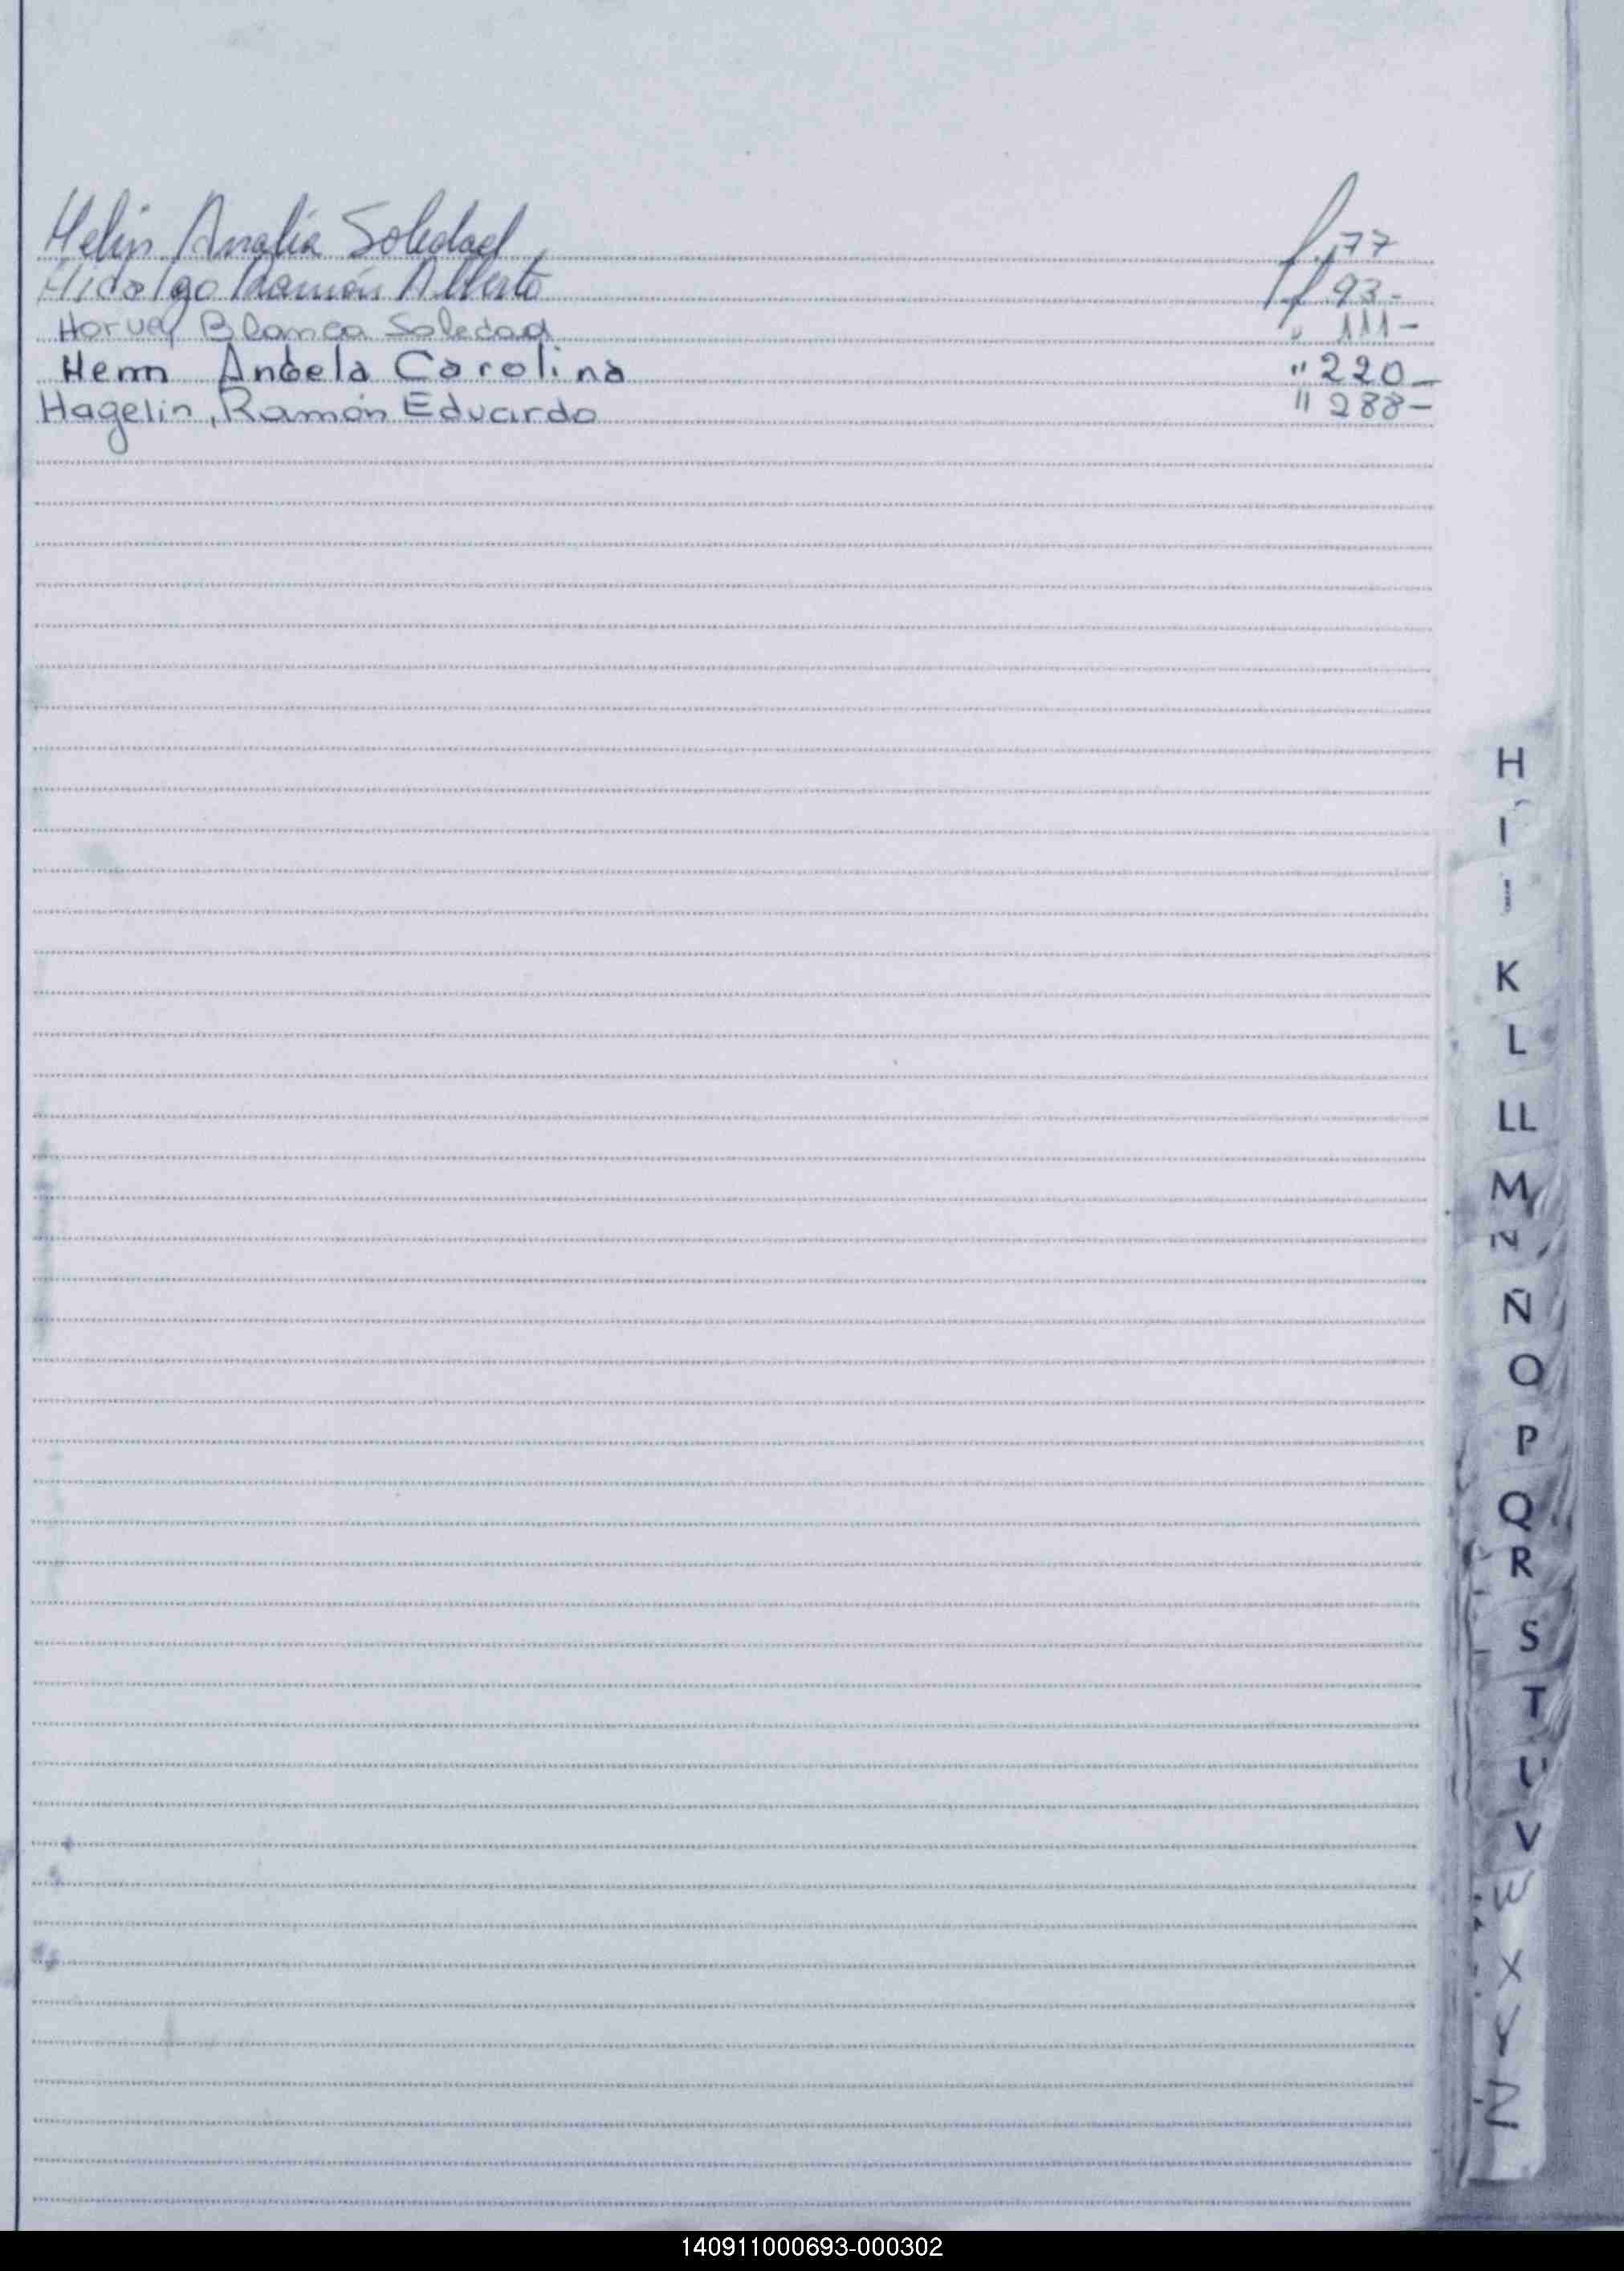 Helin Analía Soledad f. 77
Hidalgo Ramón Alberto f. 93-
Horvey Blanca Soledad " 111-
Henn Angela Carolina " 220-
Hagelin, Ramón Eduardo " 288-
H
I
J
K
L
LL
M
N
Ñ
O
P
Q
R
S
T
U
V
W
X
Y
Z
140911000693-000302